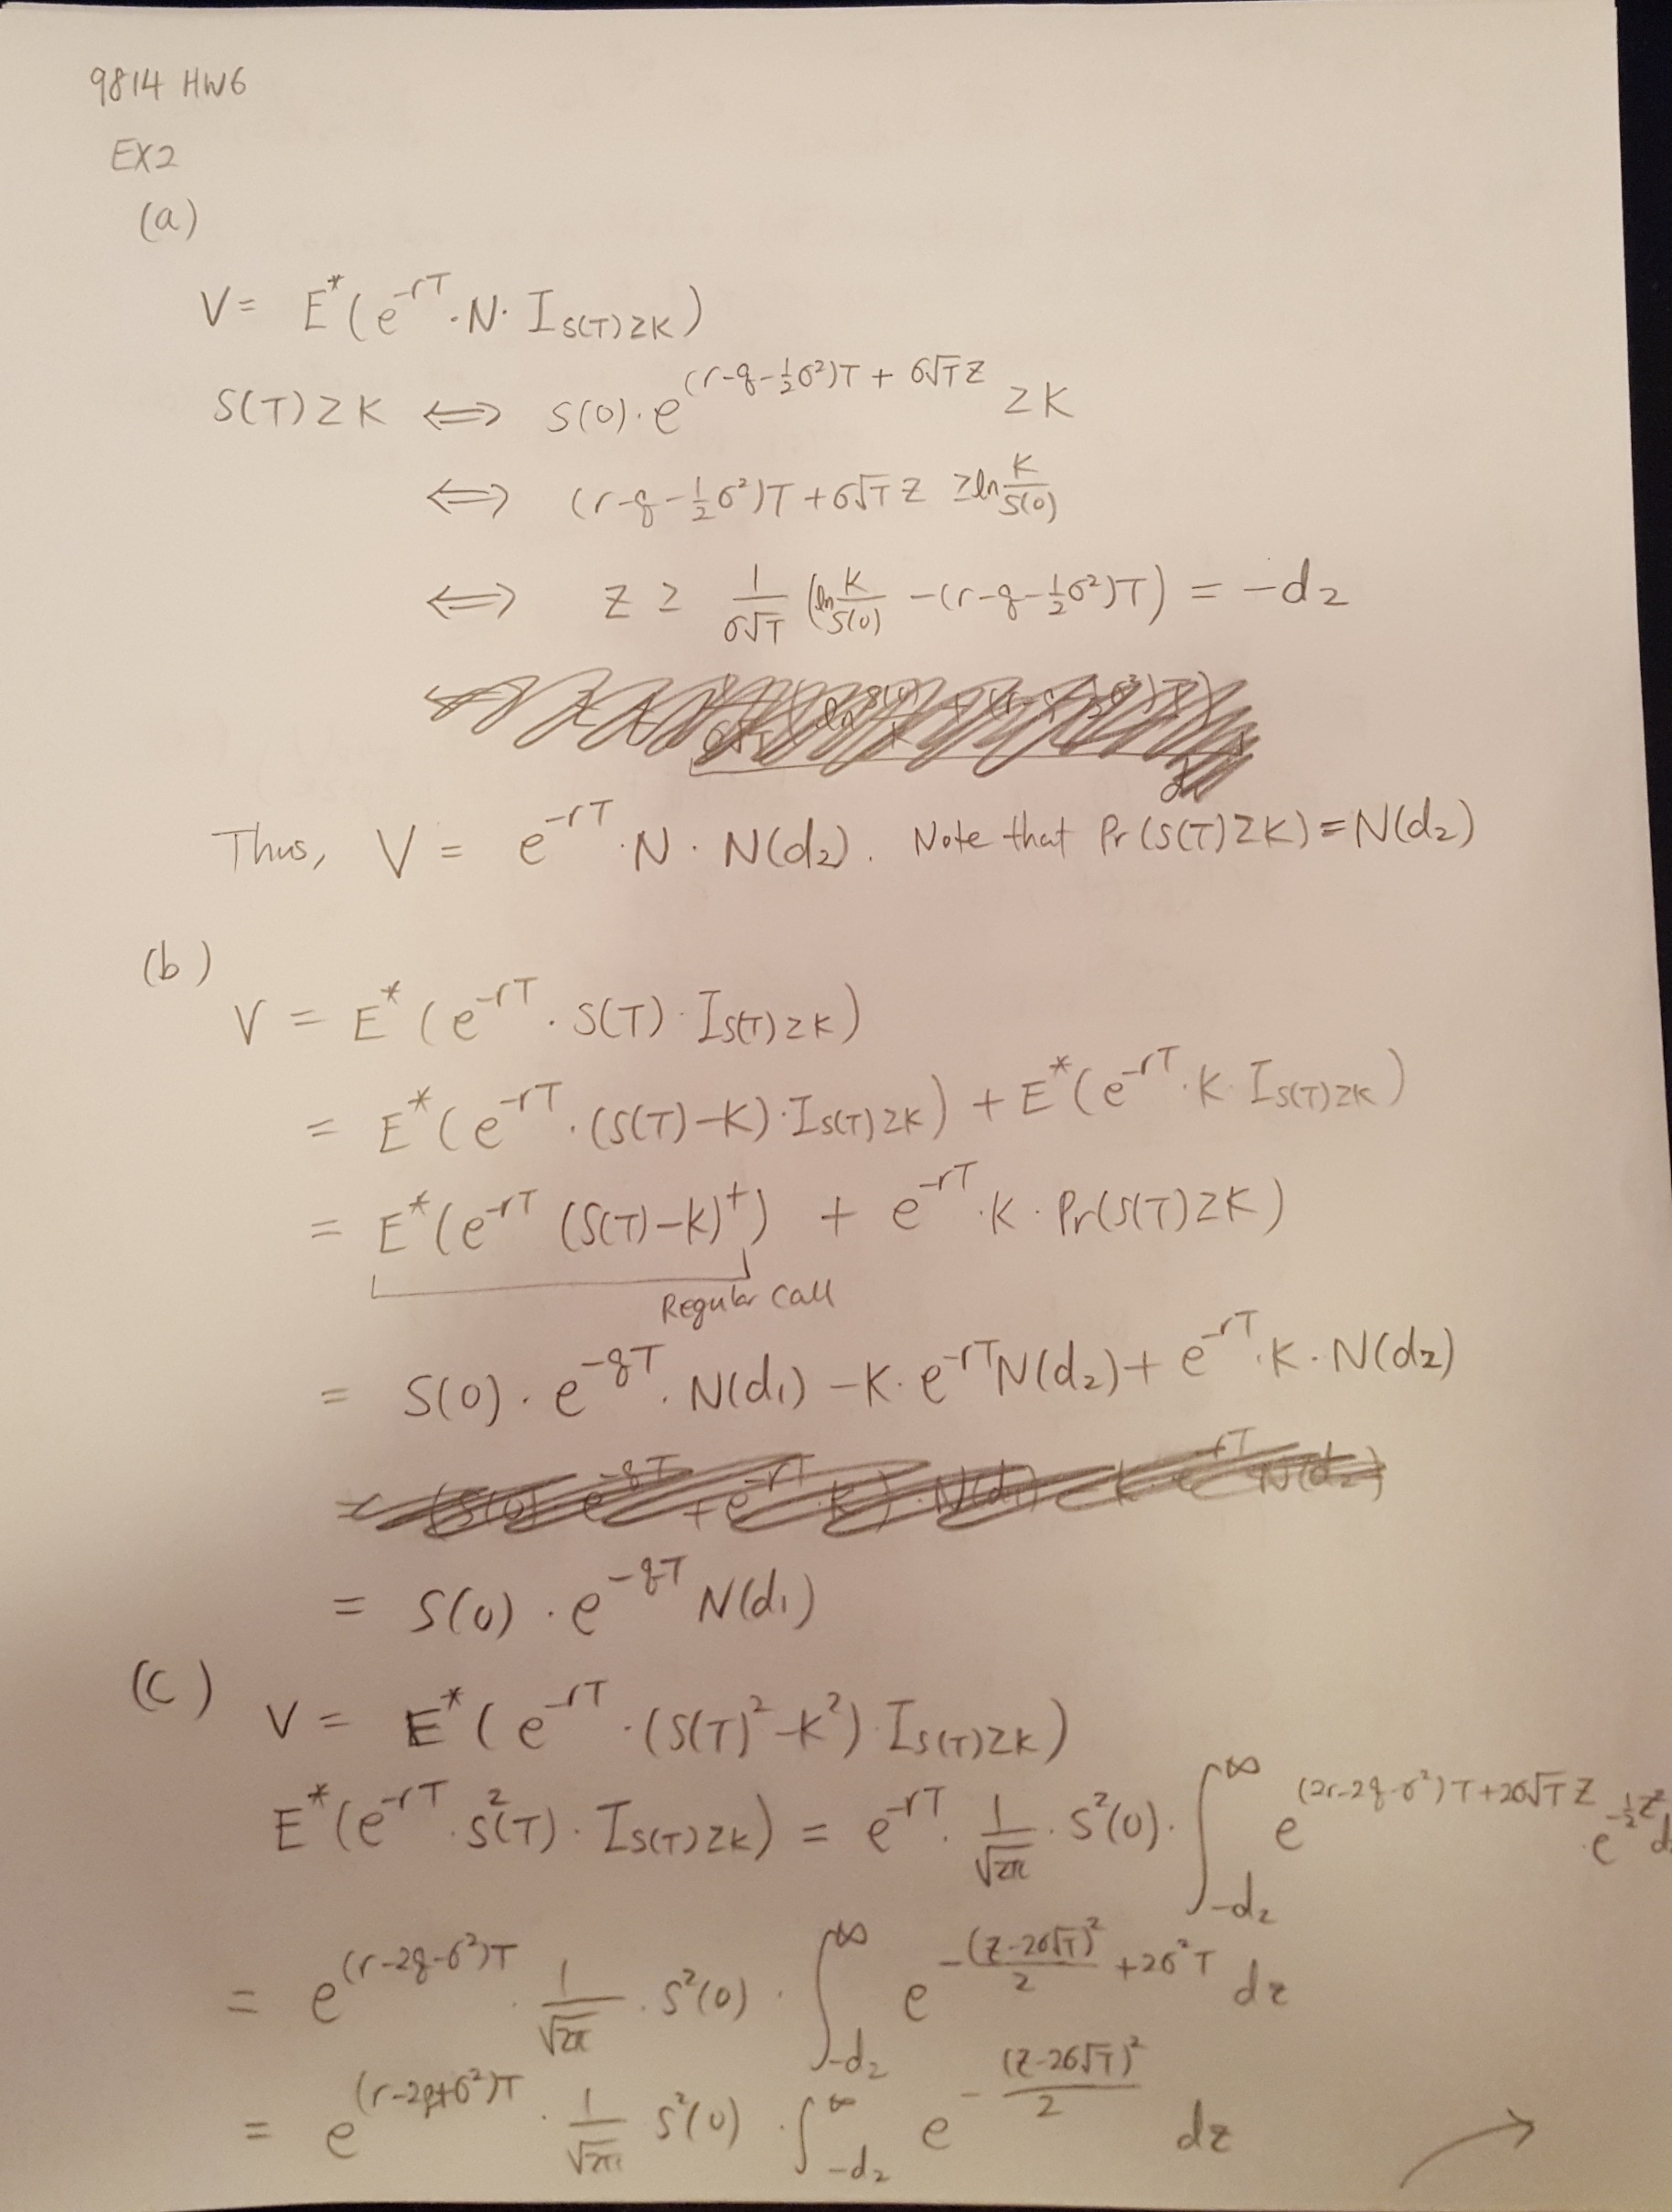 9814 HW6
EX2
(a)
V = E*(e^{-rT} · N · I_{S(T)≥K})
S(T)≥K ⟺ S(0)·e^{(r-q-½σ²)T + σ√T Z} ≥K
⟺ (r-q-½σ²)T + σ√T Z ≥ ln K/S(0)
⟺ Z ≥ 1/(σ√T) (ln K/S(0) - (r-q-½σ²)T) = -d₂
Thus, V = e^{-rT} · N · N(d₂). Note that Pr(S(T)≥K) = N(d₂)
(b)
V = E*(e^{-rT} · S(T) · I_{S(T)≥K})
= E*(e^{-rT} · (S(T)-K) · I_{S(T)≥K}) + E*(e^{-rT} · K · I_{S(T)≥K})
= E*(e^{-rT} (S(T)-K)⁺) + e^{-rT} · K · Pr(S(T)≥K)
Regular Call
= S(0) · e^{-qT} · N(d₁) - K · e^{-rT} N(d₂) + e^{-rT} · K · N(d₂)
= S(0) · e^{-qT} N(d₁)
(c)
V = E*(e^{-rT} · (S(T)²-K²) · I_{S(T)≥K})
E*(e^{-rT} · S²(T) · I_{S(T)≥K}) = e^{-rT} · 1/√2π · S²(0) · ∫_{-d₂}^{∞} e^{(2r-2q-σ²)T+2σ√T Z} · e^{-½Z²} d
= e^{(r-2q-σ²)T} · 1/√2π · S²(0) · ∫_{-d₂}^{∞} e^{-(Z-2σ√T)²/2 + 2σ²T} dz
= e^{(r-2q+σ²)T} · 1/√2π S²(0) · ∫_{-d₂}^{∞} e^{-(Z-2σ√T)²/2} dz →